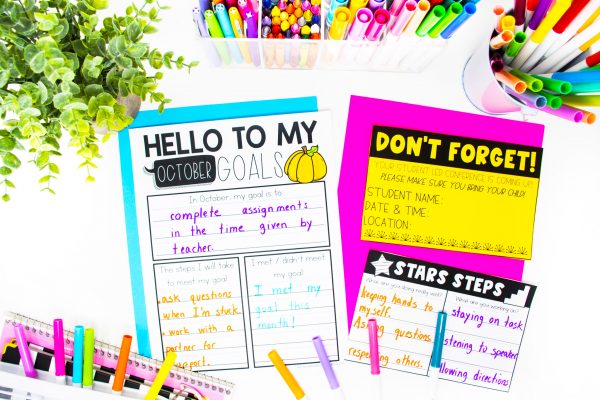 HELLO TO MY
OCTOBER GOALS
In October, my goal is to
complete assignments
in the time given by
teacher.
The steps I will take
to meet my goal
ask questions
when I'm stuck
work with a
partner for
I met / didn't meet
my goal
I met my
goal this
month!
DON'T FORGET!
YOUR STUDENT LED CONFERENCE IS COMING UP!
PLEASE MAKE SURE YOU BRING YOUR CHILD!
STUDENT NAME:
DATE & TIME:
LOCATION:
STARS STEPS
What are you doing really well?
keeping hands to
myself.
Asking questions.
respecting others.
What are you working on?
staying on task